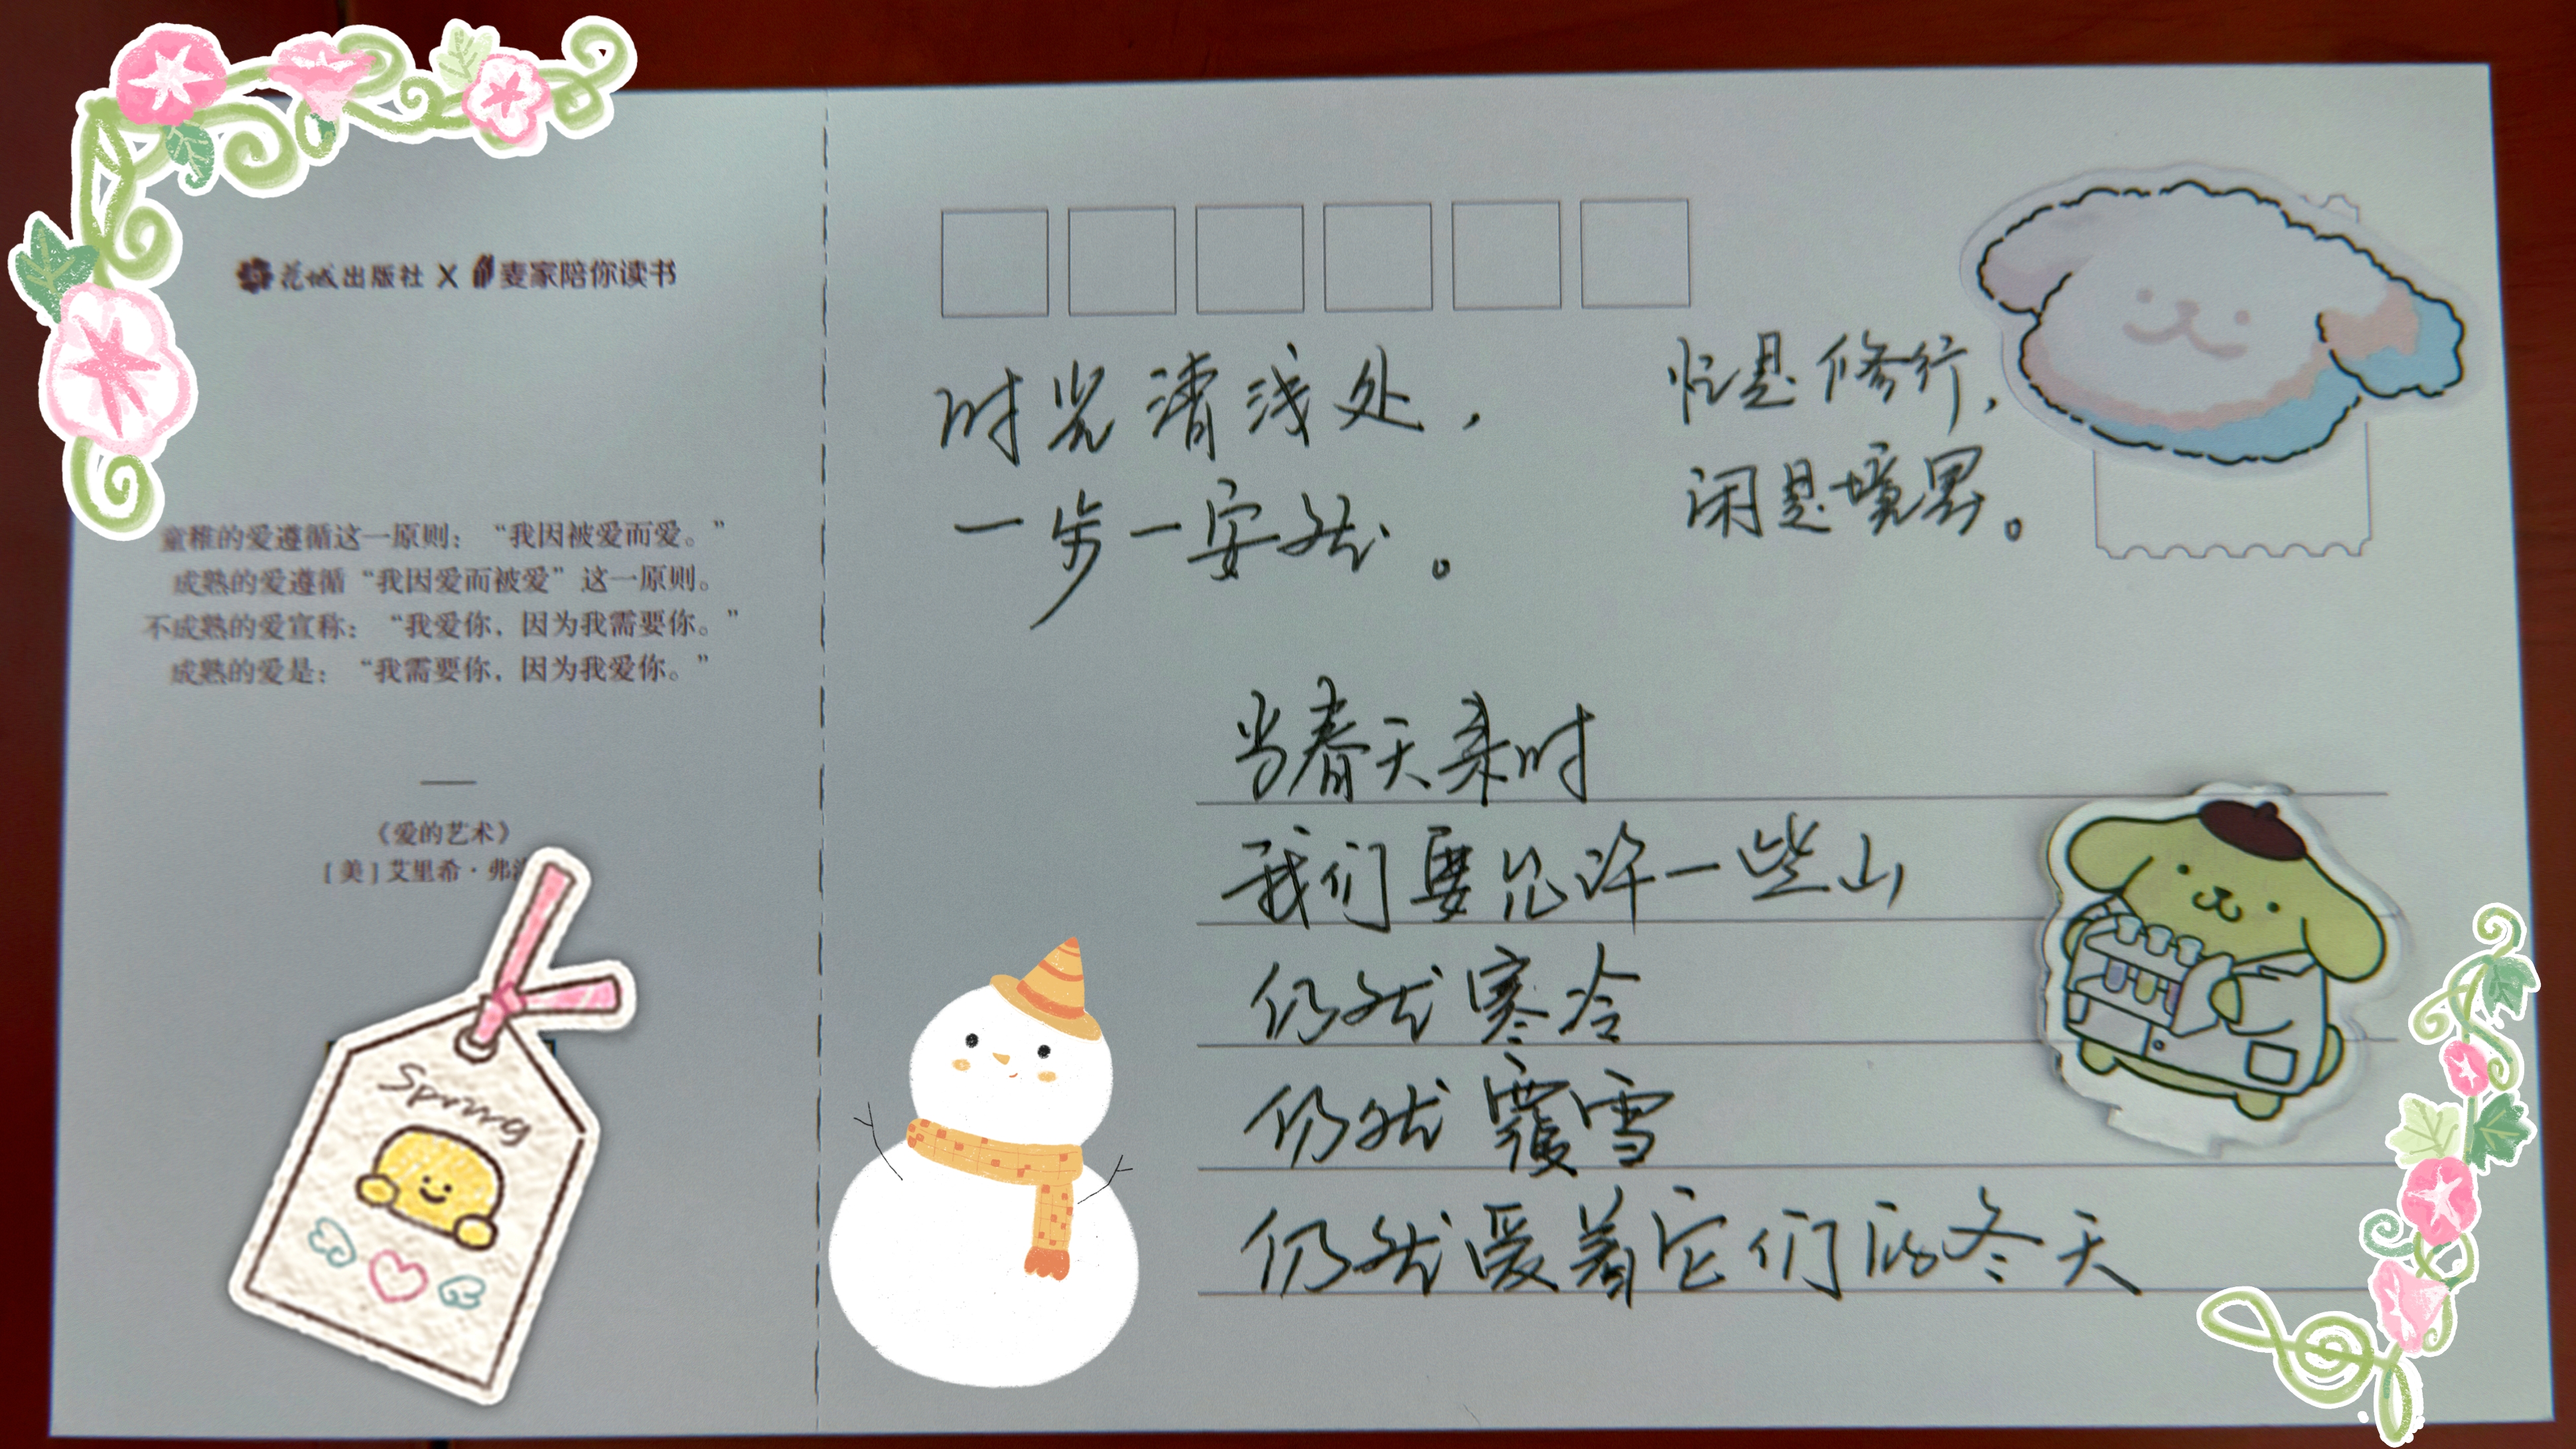 花城出版社 X 麦家陪你读书
童稚的爱遵循这一原则：“我因被爱而爱。”
成熟的爱遵循“我因爱而被爱”这一原则。
不成熟的爱宣称：“我爱你，因为我需要你。”
成熟的爱是：“我需要你，因为我爱你。”
《爱的艺术》
[美] 艾里希·弗
Spring
时光清浅处，
一步一安然。
忙是修行，
闲是境界。
当春天来时
我们要允许一些山
仍然寒冷
仍然覆雪
仍然爱着它们的冬天